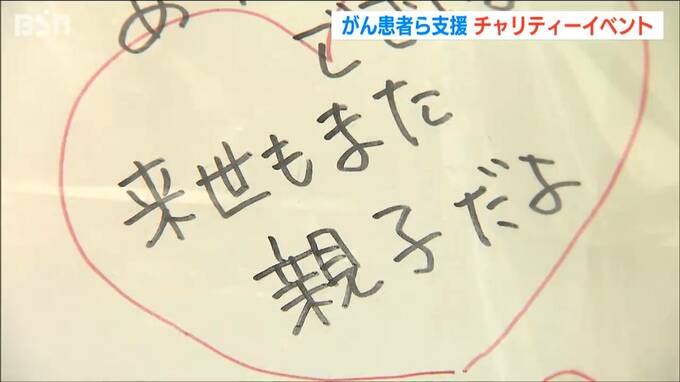 BSN
がん患者ら支援 チャリティーイベント
来世もまた
親子だよ